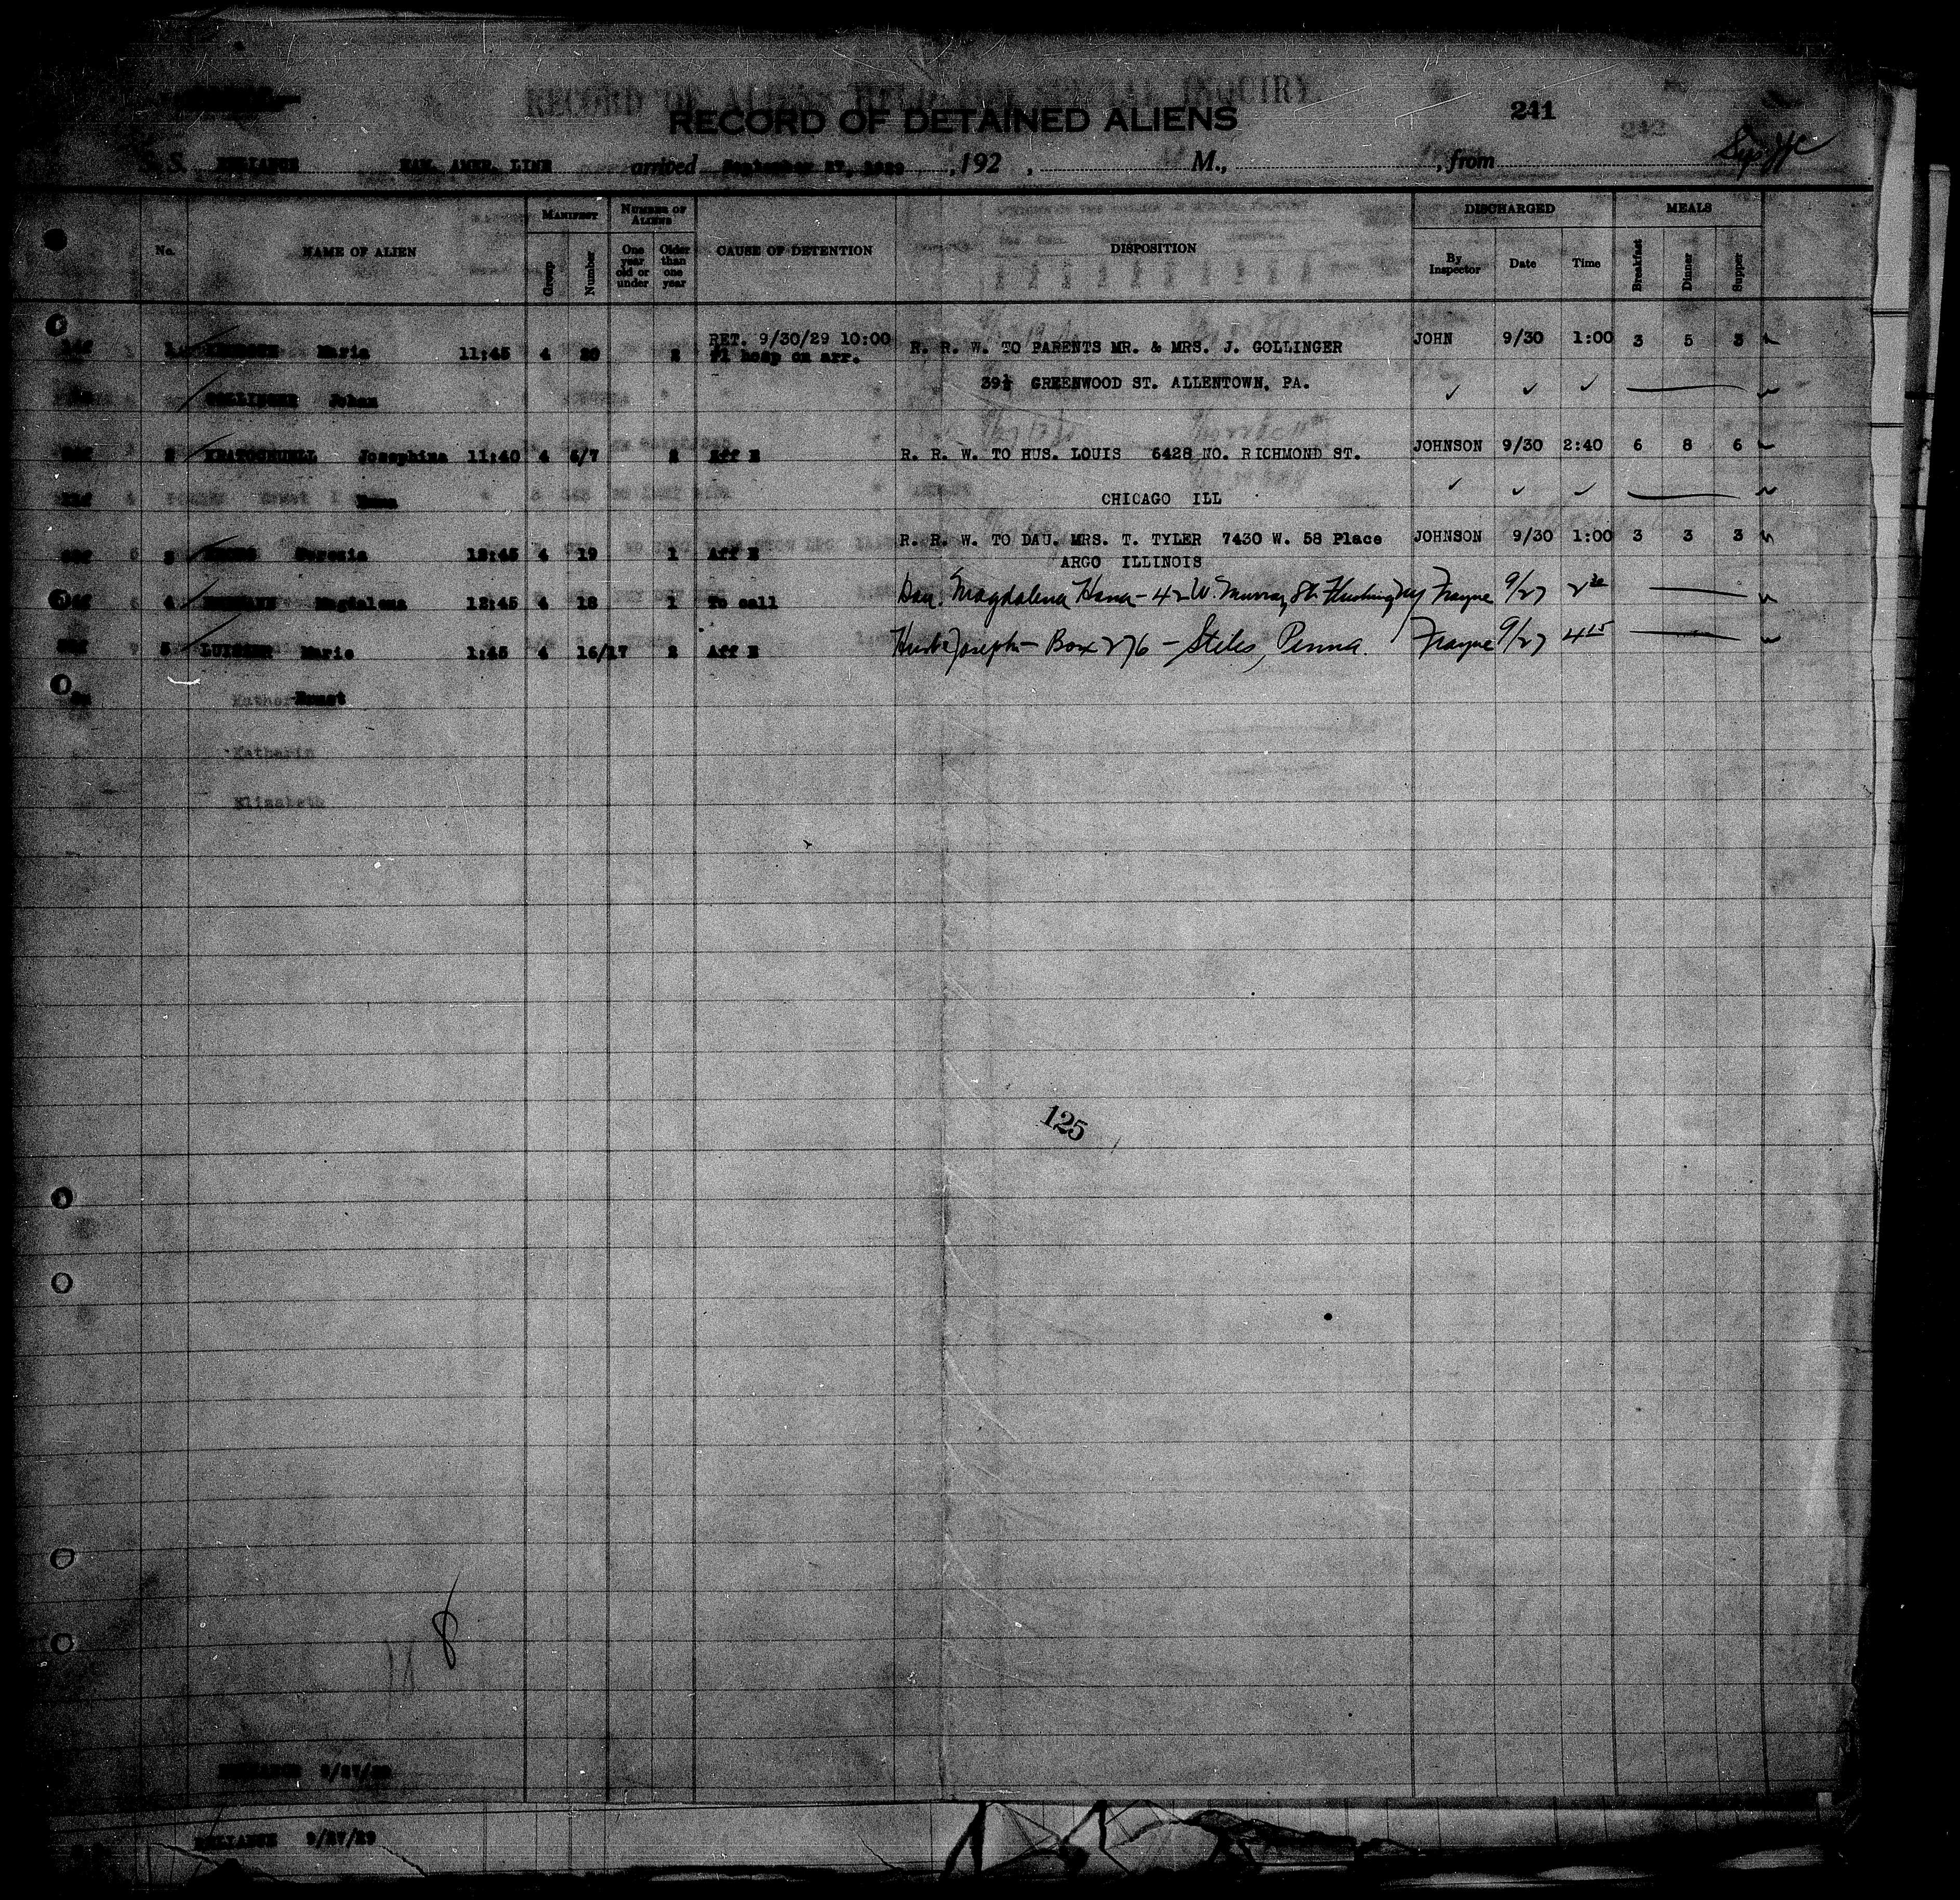 RECORD OF ALIENS HELD FOR SPECIAL INQUIRY
RECORD OF DETAINED ALIENS 241
S. S. RELIANCE HAM. AMER. LINE arrived September 27, 1929 , 192 , M., , from
No. NAME OF ALIEN MANIFEST Group Number NUMBER OF ALIENS One year old or under Older than one year CAUSE OF DETENTION DISPOSITION DISCHARGED By Inspector Date Time MEALS Breakfast Dinner Supper
RET. 9/30/29 10:00
1 Maria 11:45 4 20 2 #1 hosp on arr. R. R. W. TO PARENTS MR. & MRS. J. GOLLINGER JOHN 9/30 1:00 3 5 3
GOLLINGER Johan 39½ GREENWOOD ST. ALLENTOWN, PA. ✓ ✓ ✓
2 KRATOCHUELL Josephina 11:40 4 6/7 2 Aff E R. R. W. TO HUS. LOUIS 5428 NO. RICHMOND ST. JOHNSON 9/30 2:40 6 8 6
CHICAGO ILL ✓ ✓ ✓
3 Terezia 12:45 4 19 1 Aff E R. R. W. TO DAU. MRS. T. TYLER 7430 W. 58 Place JOHNSON 9/30 1:00 3 3 3
ARGO ILLINOIS
4 Magdalena 12:45 4 18 1 To call Dau. Magdalena Hana - 42 W. Murray St. Flushing NY Frayne 9/27 2 30
5 Marie 1:45 4 16/17 2 Aff E Husb Joseph - Box 276 - Stiles, Penna. Frayne 9/27 4 15
Ernst
Katharin
Elizabeth
125
8
RELIANCE 9/27/29
RELIANCE 9/27/29